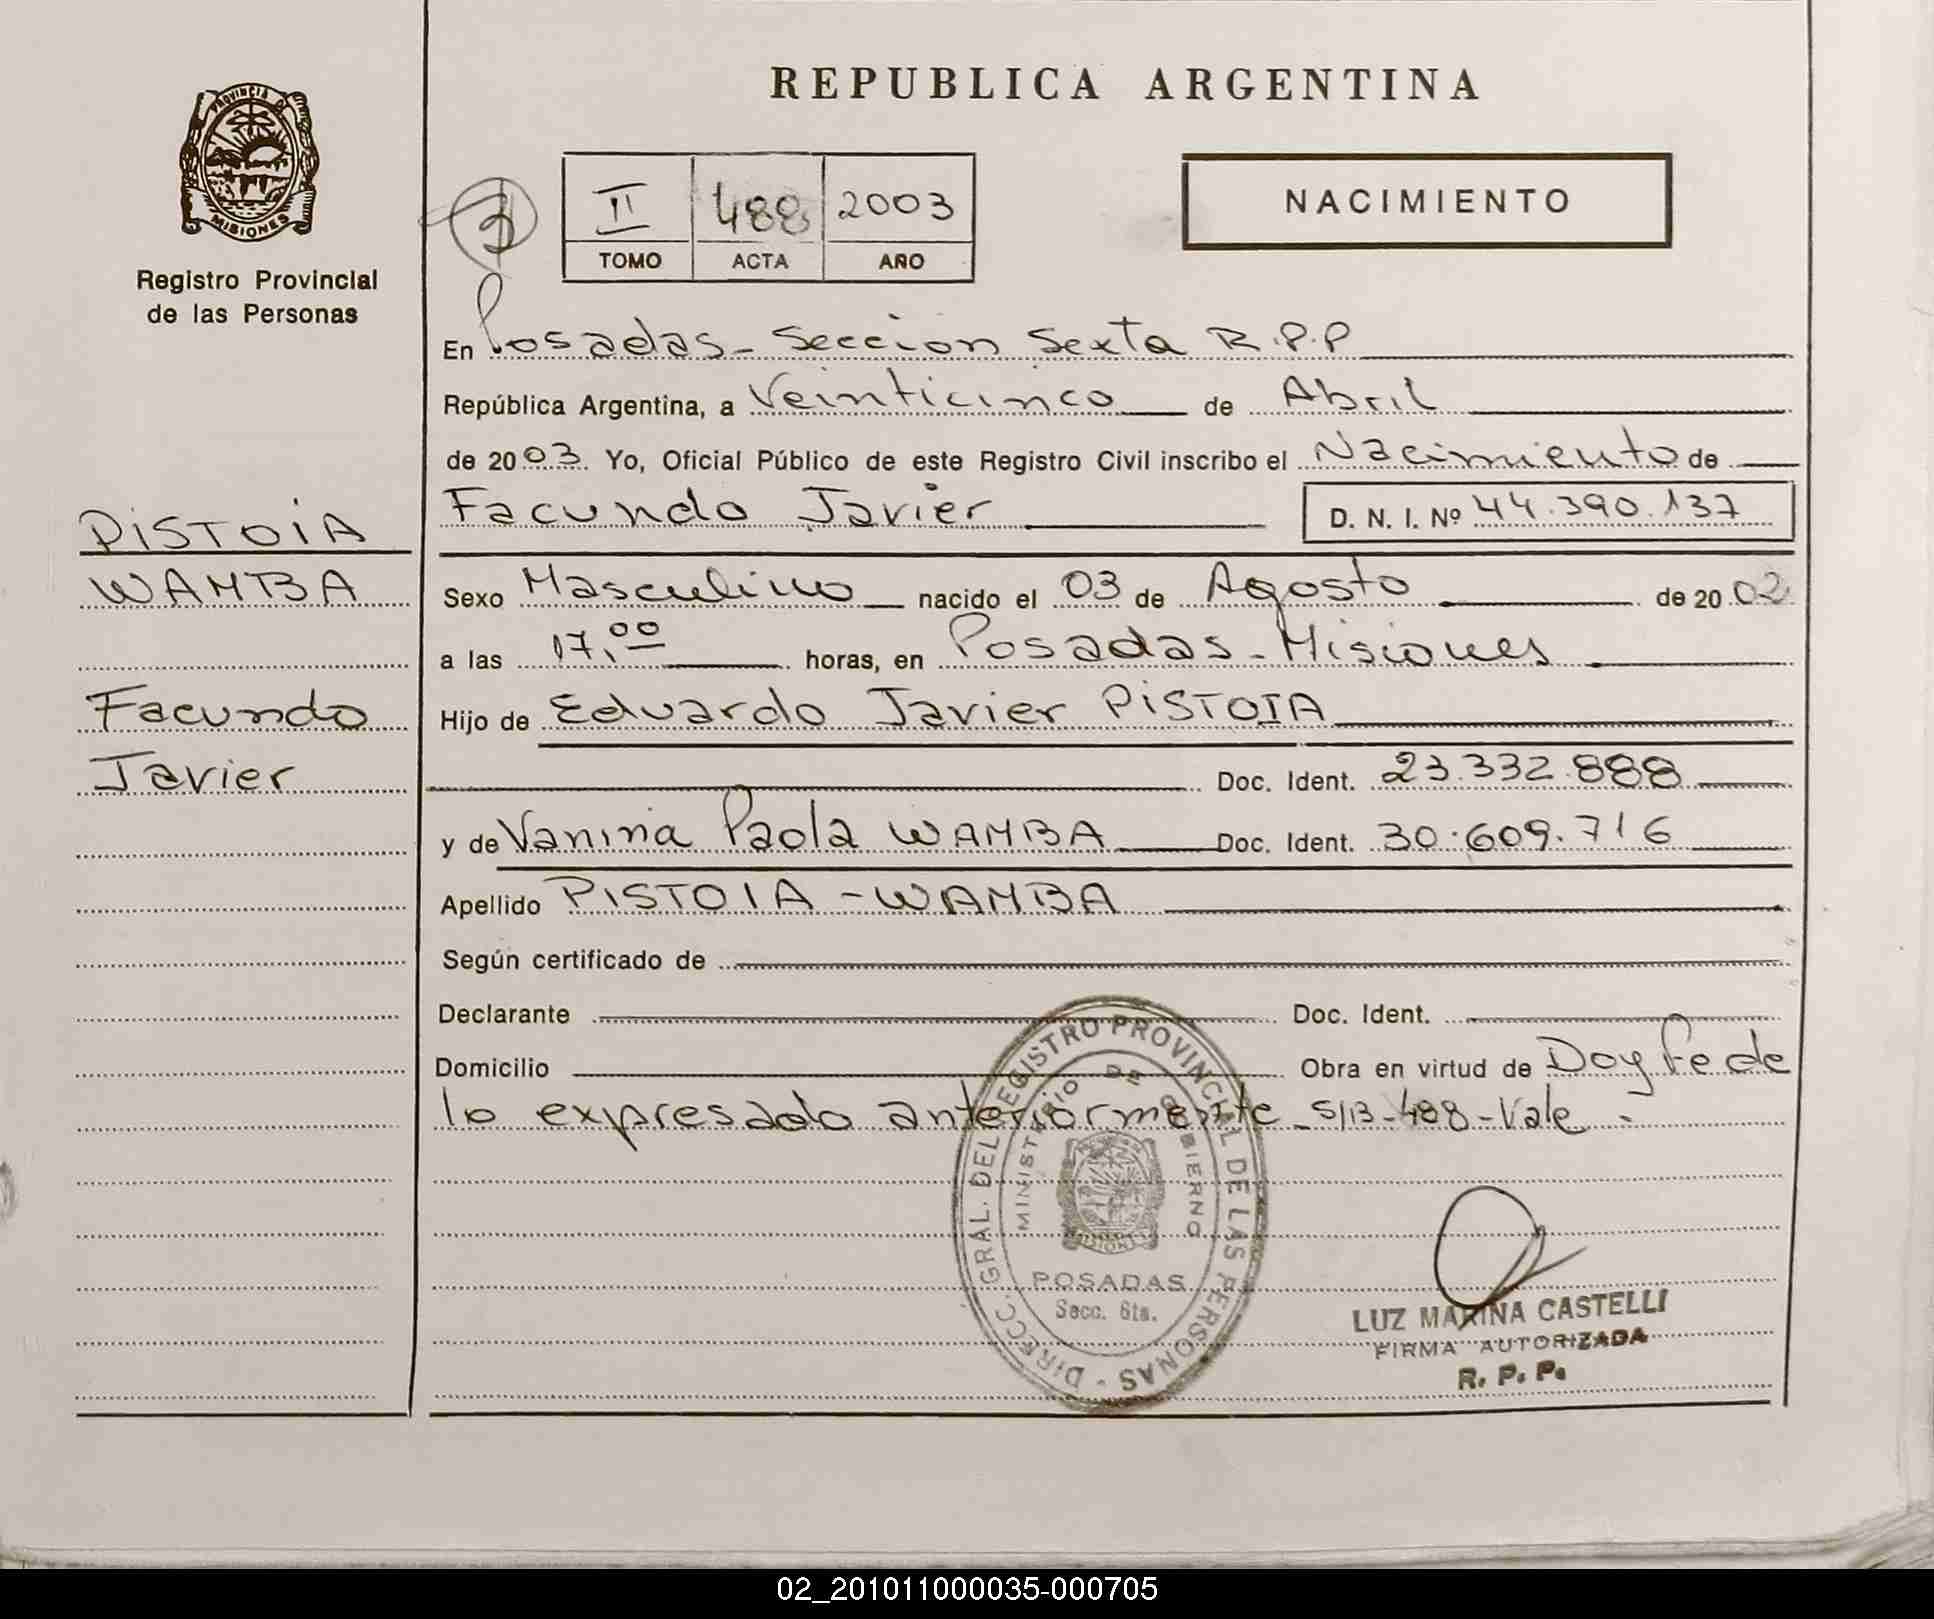 REPUBLICA ARGENTINA
PROVINCIA DE
MISIONES
Registro Provincial
de las Personas
II 488 2003
TOMO ACTA AÑO
NACIMIENTO
En Posadas - Seccion Sexta R.P.P
República Argentina, a Veinticinco de Abril
de 2003. Yo, Oficial Público de este Registro Civil inscribo el Nacimiento de
Facundo Javier D. N. I. Nº 44.390.137
PISTOIA
WAMBA
Facundo
Javier
Sexo Masculino nacido el 03 de Agosto de 2002
a las 17,00 horas, en Posadas - Misiones
Hijo de Eduardo Javier PISTOIA
Doc. Ident. 23.332.888
y de Vanina Paola WAMBA Doc. Ident. 30.609.716
Apellido PISTOIA - WAMBA
Según certificado de
Declarante Doc. Ident.
Domicilio Obra en virtud de Doy Fe de
lo expresado anteriormente - S/B - 488 - Vale -
DIRECC. GRAL. DEL REGISTRO PROVINCIAL DE LAS PERSONAS -
MINISTERIO DE GOBIERNO
MISIONES
POSADAS
Secc. 6ta.
LUZ MARINA CASTELLI
FIRMA AUTORIZADA
R. P. P.
02_201011000035-000705